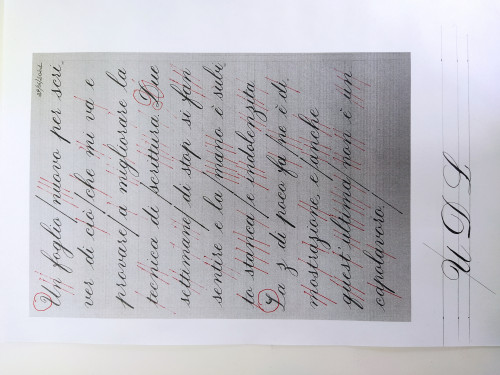 Un foglio nuovo per scri
ver di ciò che mi va e
provare a migliorare la
tecnica di scrittura. Due
settimane di stop si fan
sentire e la mano è subi
to stanca e indolenzita
La z di poco fa ne è di
mostrazione, e anche
quest'ultima non è un
capolavoro.
U D L